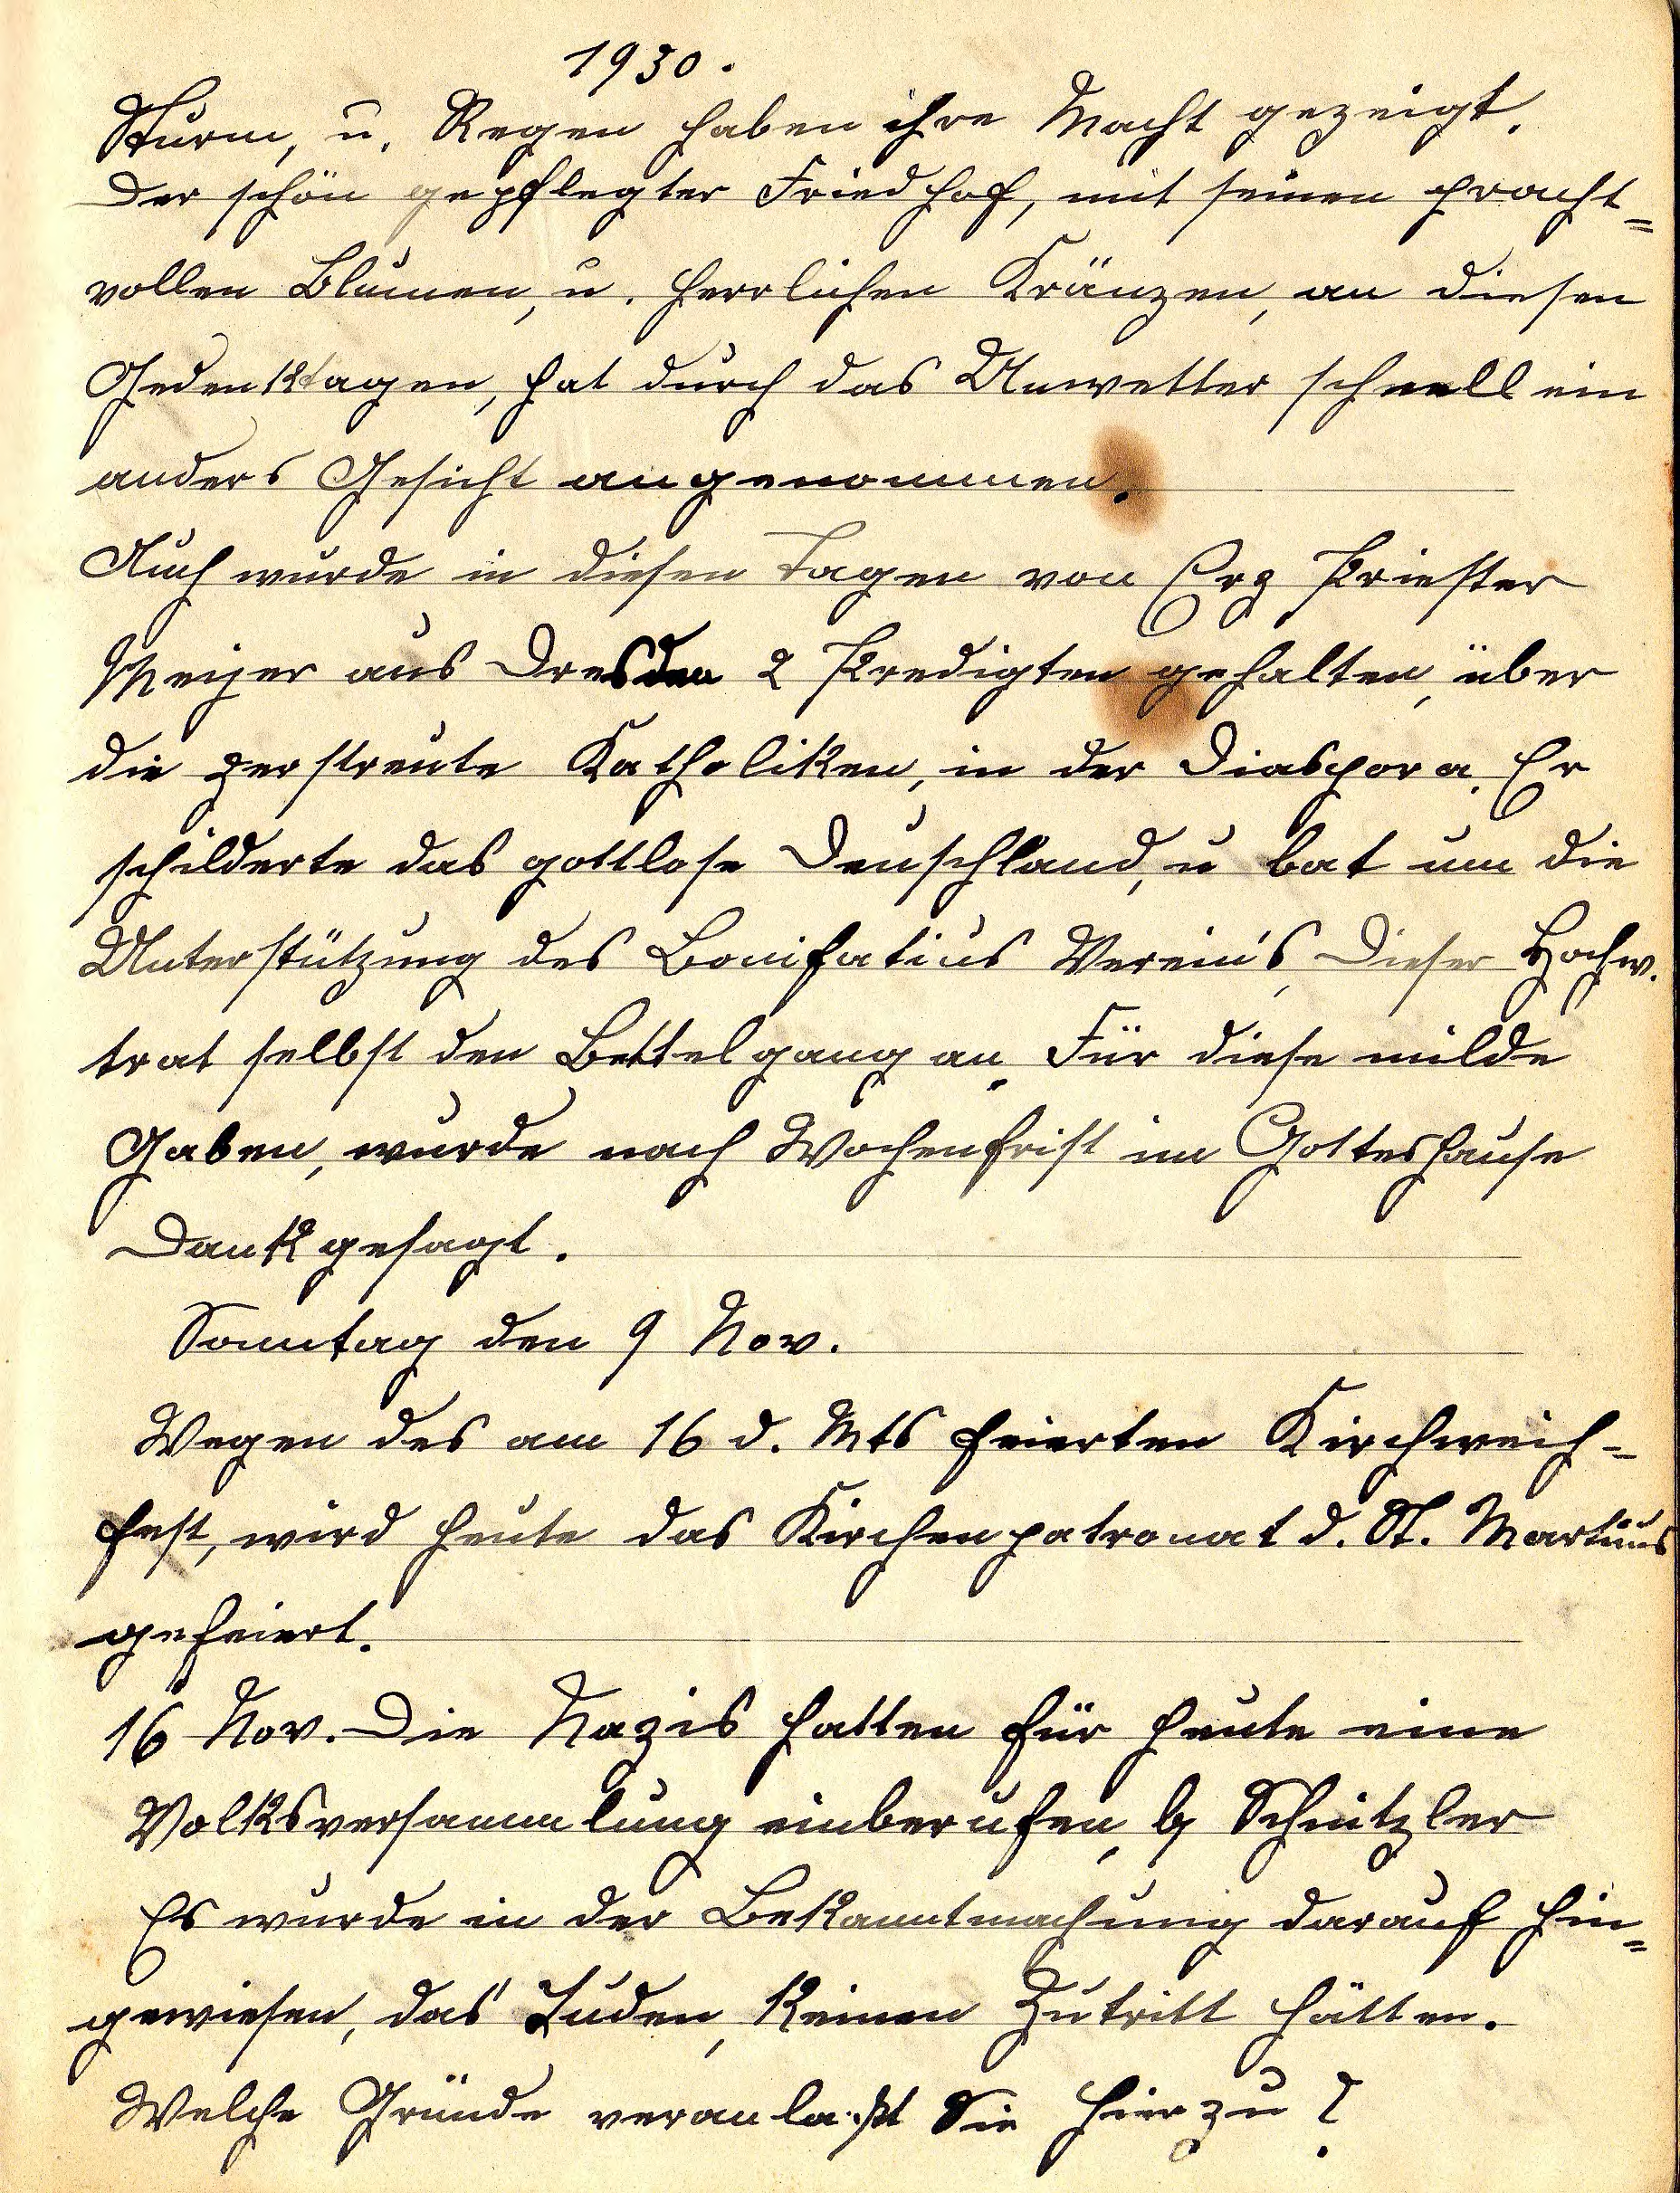 1930.
Sturm, u. Regen haben ihre Macht gezeigt.
Der schön gepflegter Friedhof, mit seinen pracht=
vollen Blumen, u. herrlichen Kränzen, an diesen
Gedenktagen, hat durch das Unwetter schnell ein
anders Gesicht angenommen.
Auch wurde in diesen Tagen von Erz Priester
Meijer aus Dresden 2 Predigten gehalten, über
die zerstreute Katholiken, in der Diaspora. Er
schilderte das gottlose Deuschland, u bat um die
Unterstützung des Bonifatius Verein's, Dieser Hochw.
trat selbst den Bettelgang an. Für diese milde
Gaben, wurde nach Wochenfrist im Gotteshause
Dank gesagt.
Sonntag den 9 Nov.
Wegen des am 16 d. Mts feierten Kirchweih-
fest, wird heute das Kirchenpatronat d. St. Martinus
gefeiert.
16 Nov. Die Nazis hatten für heute eine
Volksversammlung einberufen, b/ Schnitzler
Es wurde in der Bekanntmachung darauf hin=
gewiesen, das Juden, keinen Zutritt hätten.
Welche Gründe veranlaßt Sie hierzu?